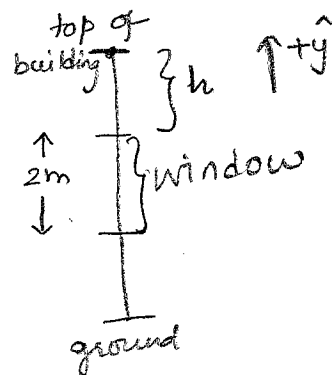 top of
building
h
+ŷ
2m
window
ground